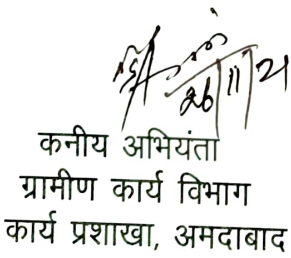 26/11/21
कनीय अभियंता
ग्रामीण कार्य विभाग
कार्य प्रशाखा, अमदाबाद